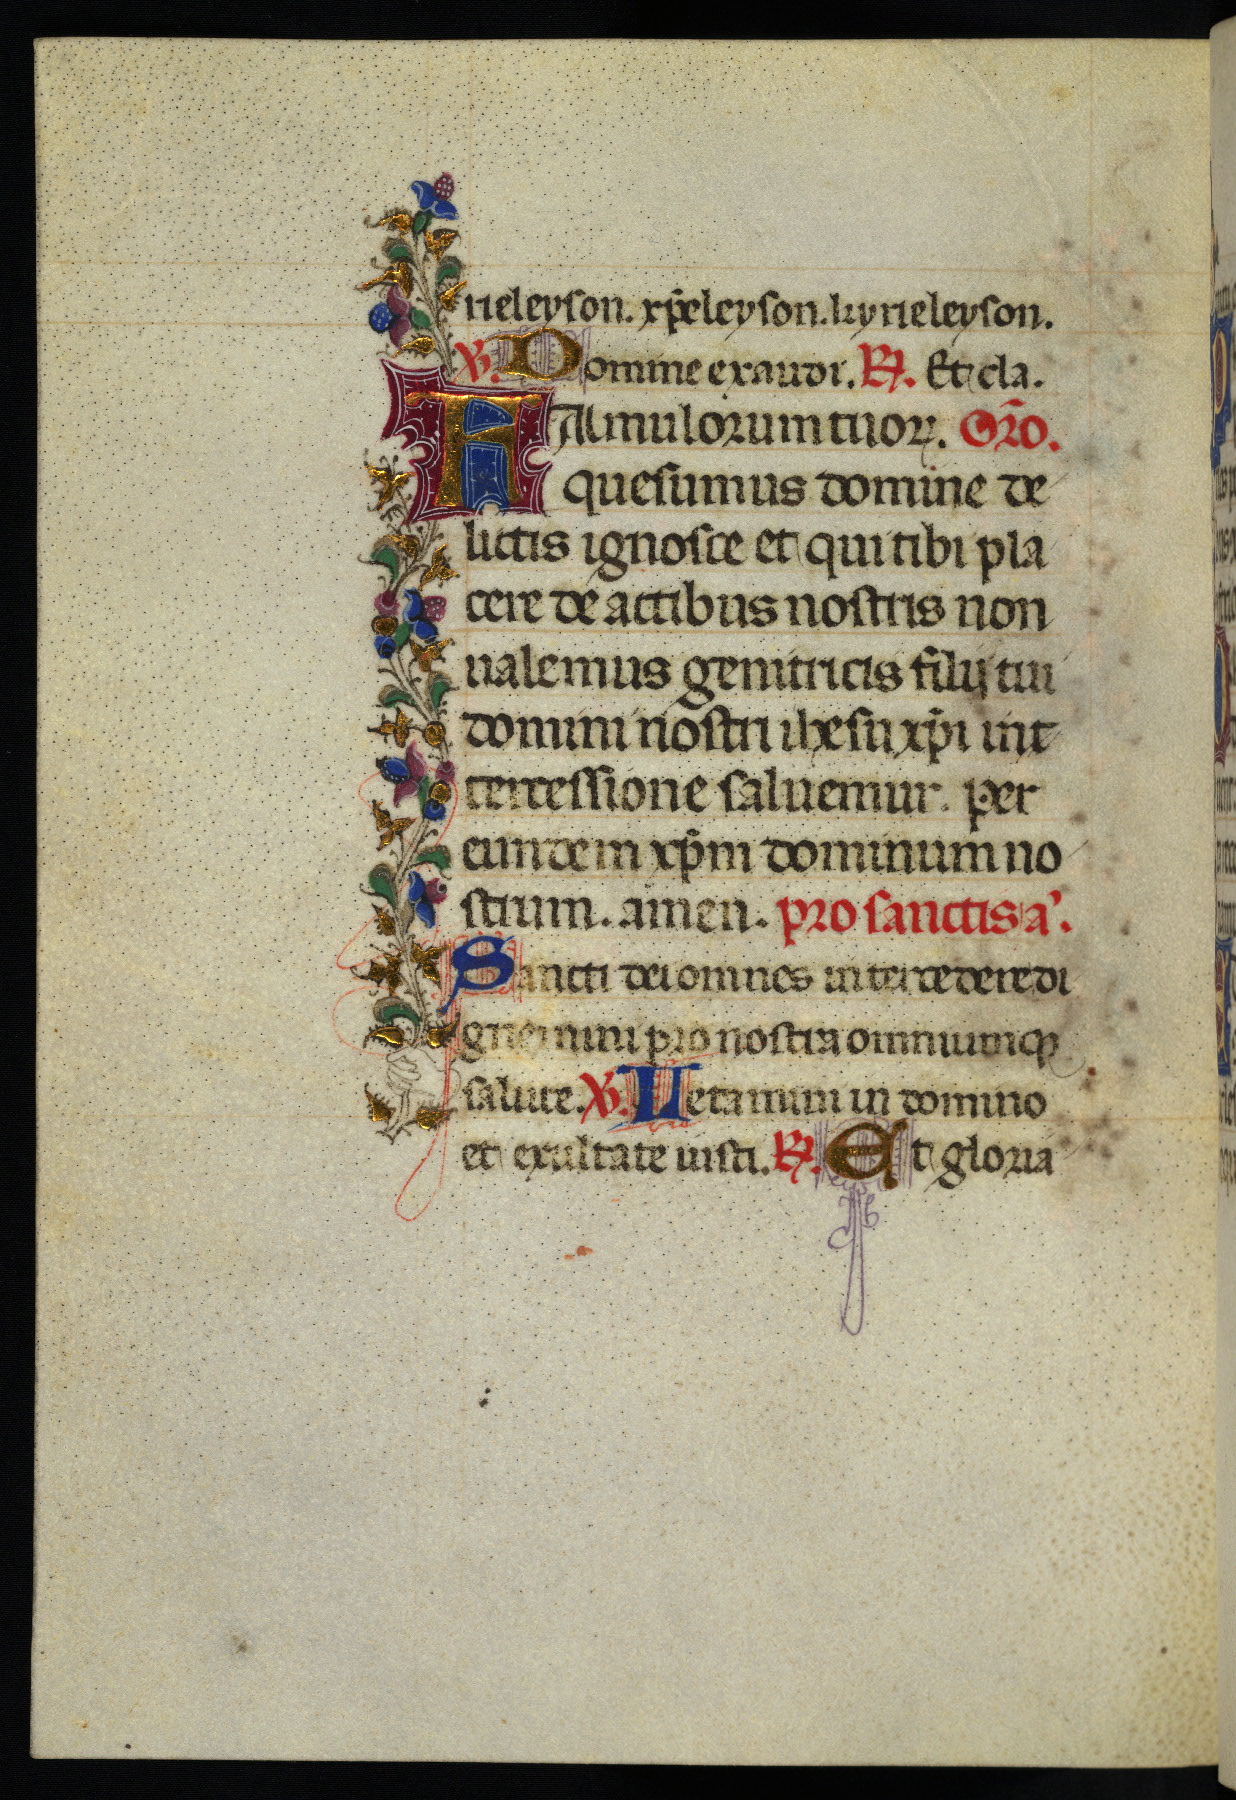 rieleyson. xp̄eleyson. kyrieleyson.
℣. Domine exaudi. ℟. Et cla.
FAmulorum tuoꝝ. Or̄o.
quesumus domine de
lictis ignosce et qui tibi pla
cere de actibus nostris non
ualemus genitricis filij tui
domini nostri ihesu xp̄i int
tercessione saluemur. per
eundem xp̄m dominum no
strum. amen. pro sanctis a'.
Sancti dei omnes intercedere di
gnemini pro nostra omniumqꝫ
salute. ℣. Letamini in domino
et exultate iusti. ℟. Et gloria